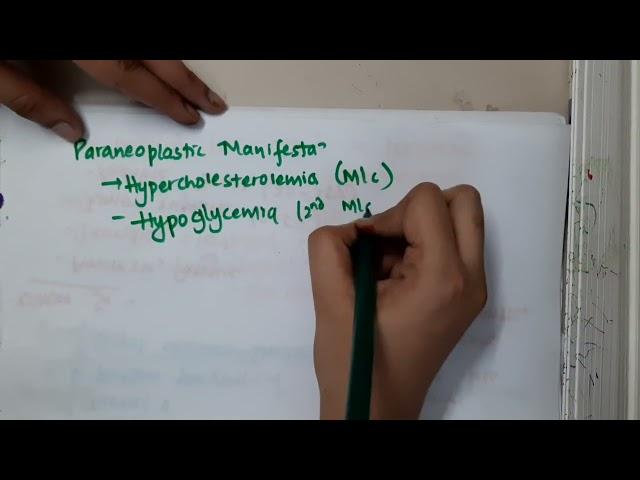 Paraneoplastic Manifesta-
→ Hypercholesterolemia (M/c)
- Hypoglycemia (2nd M/c